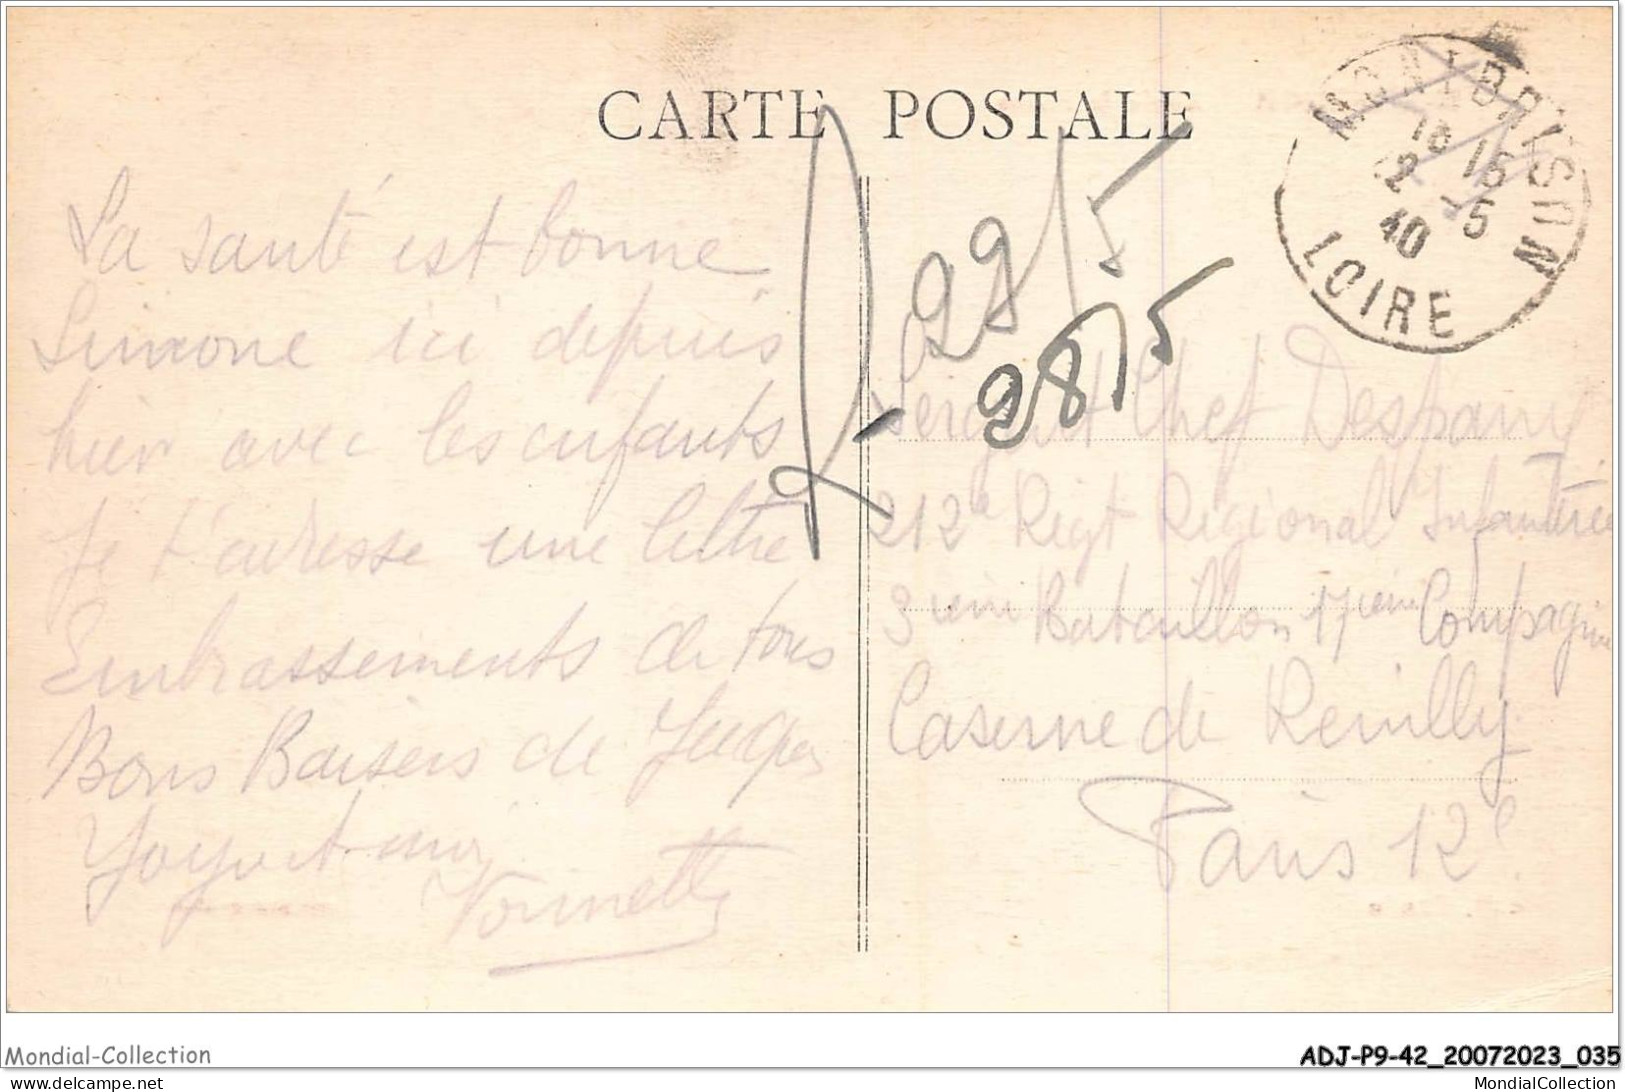 CARTE POSTALE
MONTBRISON
18 15
12 -5
40
LOIRE
La santé est bonne
Simone ici depuis
hier avec les enfants
Je t'adresse une lettre
Embrassements de tous
Bons Baisers de
et moi
R 22/5
28/5
Sergent Chef Despany
212e Regt Régional Infanterie
3ième Bataillon 17ième Compagnie
Caserne de Reuilly
Paris 12e
Mondial-Collection
ADJ-P9-42_20072023_035
www.delcampe.net
MondialCollection